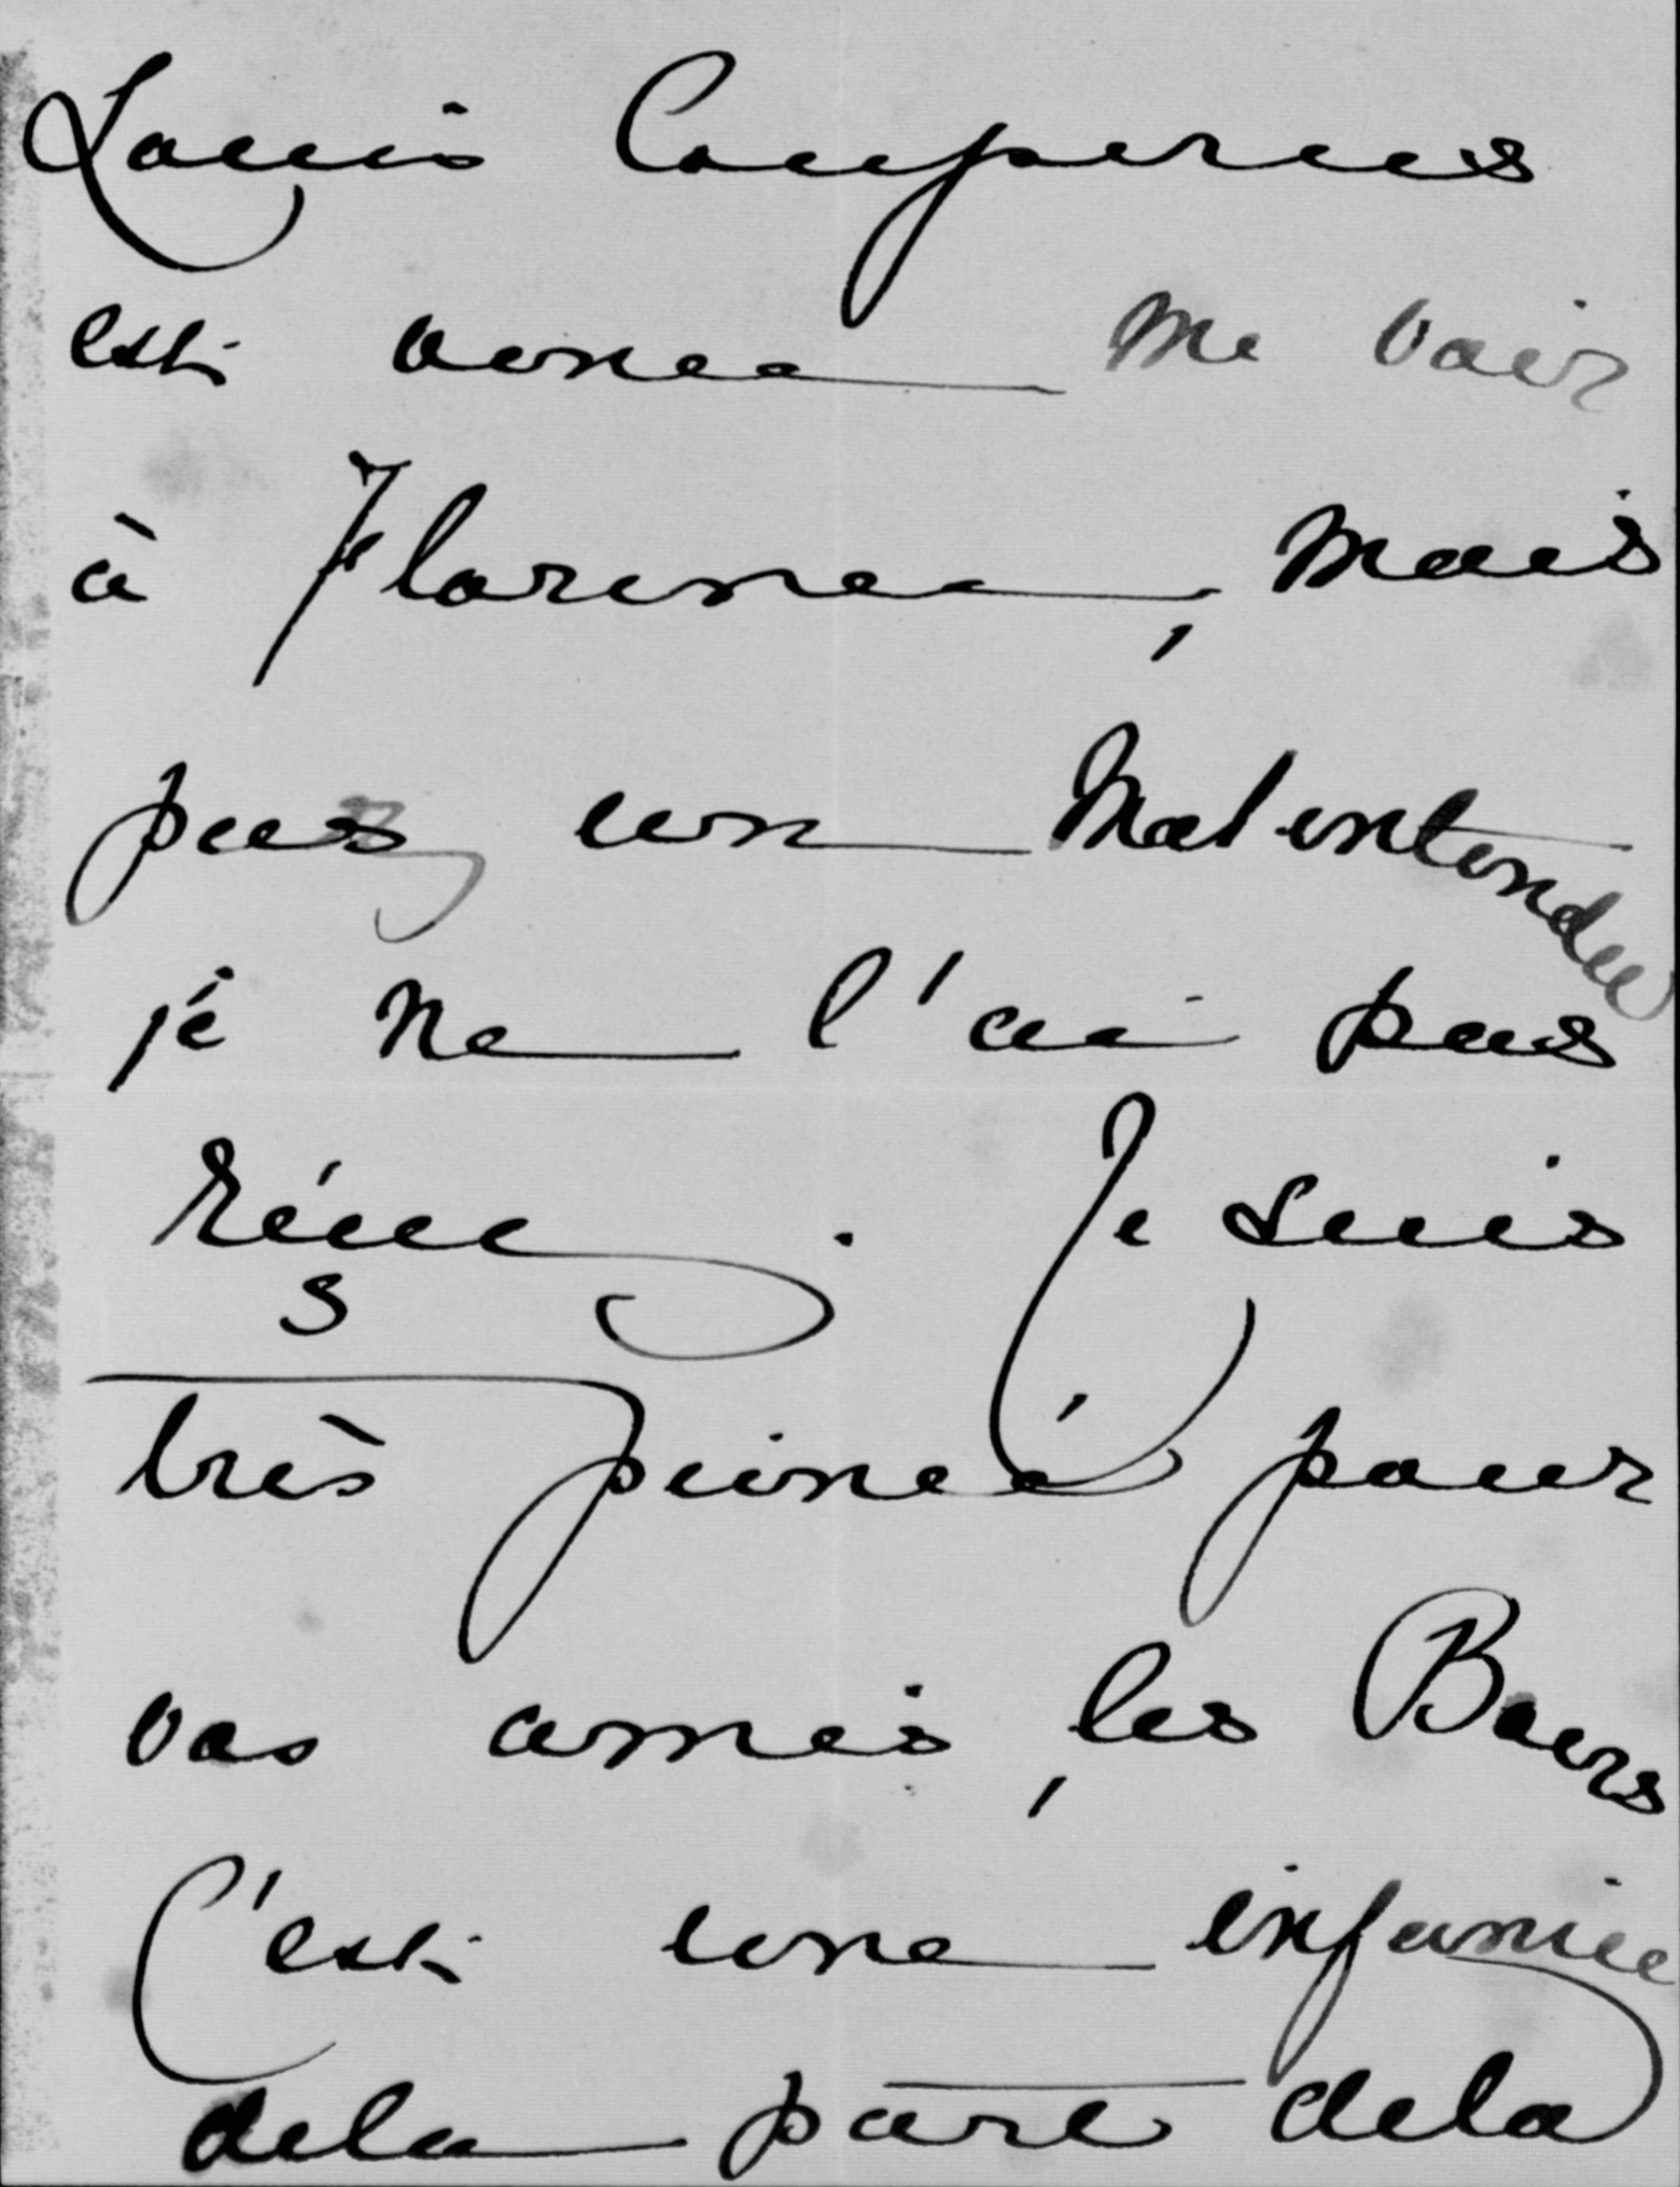 Louis Couperus
est venu me voir
à Florence, mais
par un malentendu
je ne l'ai pas
réçu. Je suis
très peinée pour
vos amis, les Boers
C'est une infamie
dela part dela